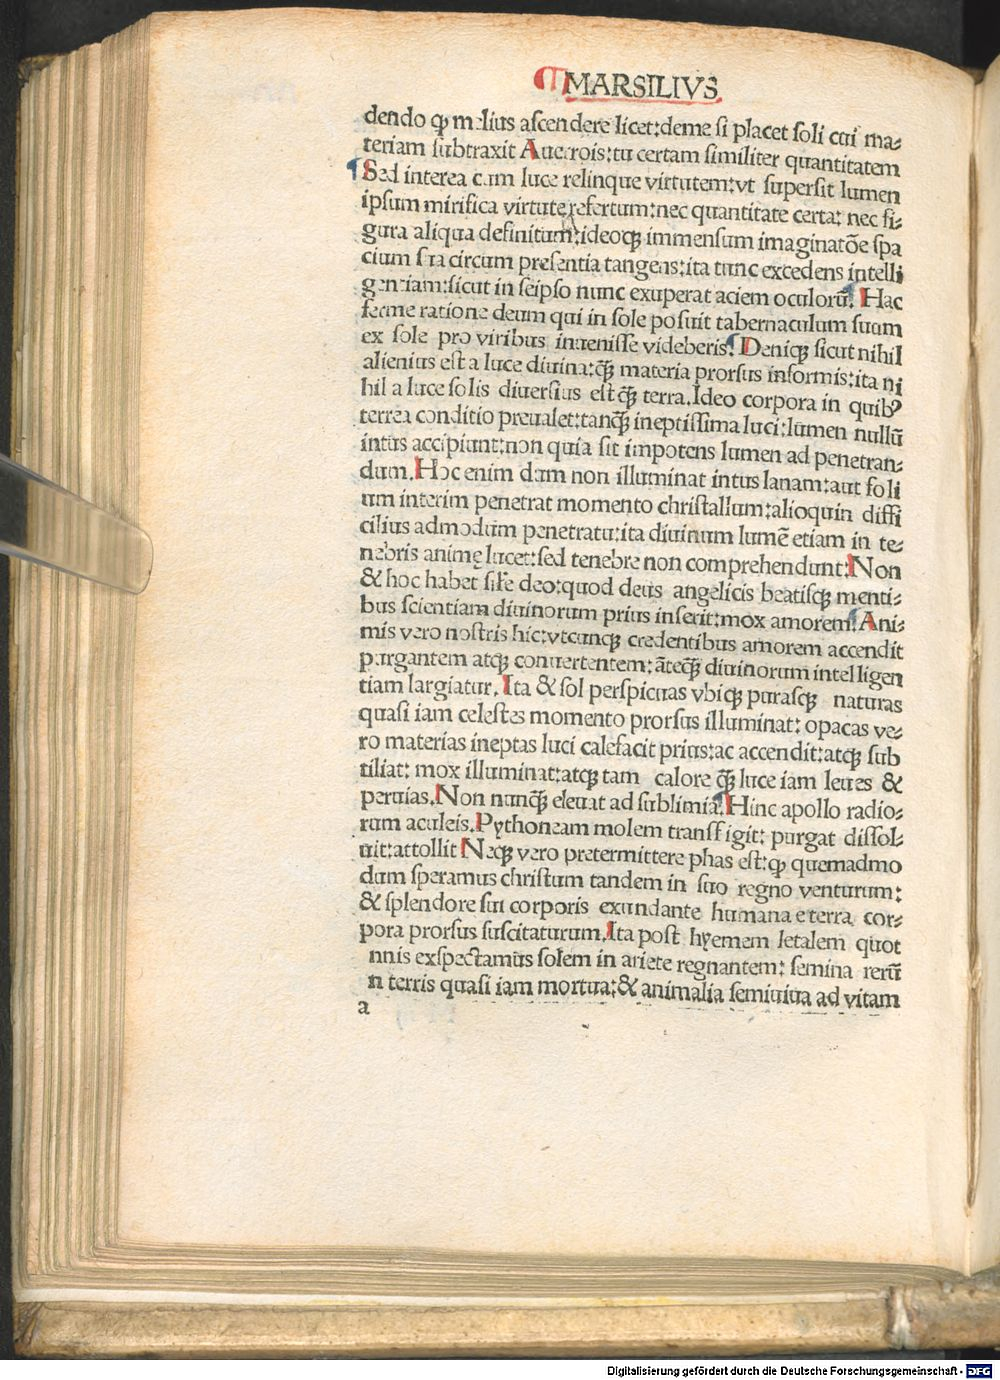 MARSILIVS
dendo ꝙ melius ascendere licet:deme si placet soli cui ma⸗
teriam subtraxit Auerrois:tu certam similiter quantitatem
Sed interea cum luce relinque virtutem:vt supersit lumen
ipsum mirifica virtute refertum:nec quantitate certa: nec fi⸗
gura aliqua definitum:ideoqꝫ immensum imaginatõe spa
cium sua circum presentia tangens:ita tunc excedens intelli
gentiam:sicut in seipso nunc exuperat aciem oculorũ. Hac
ferme ratione deum qui in sole posuit tabernaculum suum
ex sole pro viribus inuenisse videberis. Deniqꝫ sicut nihil
alienius est a luce diuina:q̃ꝫ materia prorsus informis:ita ni
hil a luce solis diuersius est q̃ꝫ terra.Ideo corpora in quibꝰ
terrea conditio preualet:tanq̃ꝫ ineptissima luci:lumen nullũ
intus accipiunt:non quia sit impotens lumen ad penetran⸗
dum.Hoc enim dum non illuminat intus lanam:aut foli
um interim penetrat momento christallum:alioquin diffi
cilius admodum penetratu:ita diuinum lumẽ etiam in te⸗
nebris animę lucet:sed tenebre non comprehendunt:Non
& hoc habet sile deo:quod deus angelicis beatisqꝫ menti⸗
bus scientiam diuinorum prius inserit:mox amorem. Ani⸗
mis vero nostris hic:vtcunqꝫ credentibus amorem accendit
purgantem atqꝫ conuertentem: ãteq̃ꝫ diuinorum intelligen
tiam largiatur. Ita & sol perspicuas vbiqꝫ purasqꝫ naturas
quasi iam celestes momento prorsus illuminat: opacas ve⸗
ro materias ineptas luci calefacit prius:ac accendit:atqꝫ sub
tiliat: mox illuminat:atqꝫ tam calore q̃ꝫ luce iam leues &
peruias.Non nunq̃ꝫ eleuat ad sublimia.Hinc apollo radio⸗
rum aculeis.Pythoneam molem transfigit: purgat dissol⸗
uit:attollit Neqꝫ vero pretermittere phas est:ꝙ quemadmo
dum speramus christum tandem in suo regno venturum:
& splendore sui corporis exundante humana e terra cor⸗
pora prorsus suscitaturum.Ita post hyemem letalem quot
nnis exspectamus solem in ariete regnantem: semina rerũ
n terris quasi iam mortua:& animalia semiuiua ad vitam
a
Digitalisierung gefördert durch die Deutsche Forschungsgemeinschaft - DFG